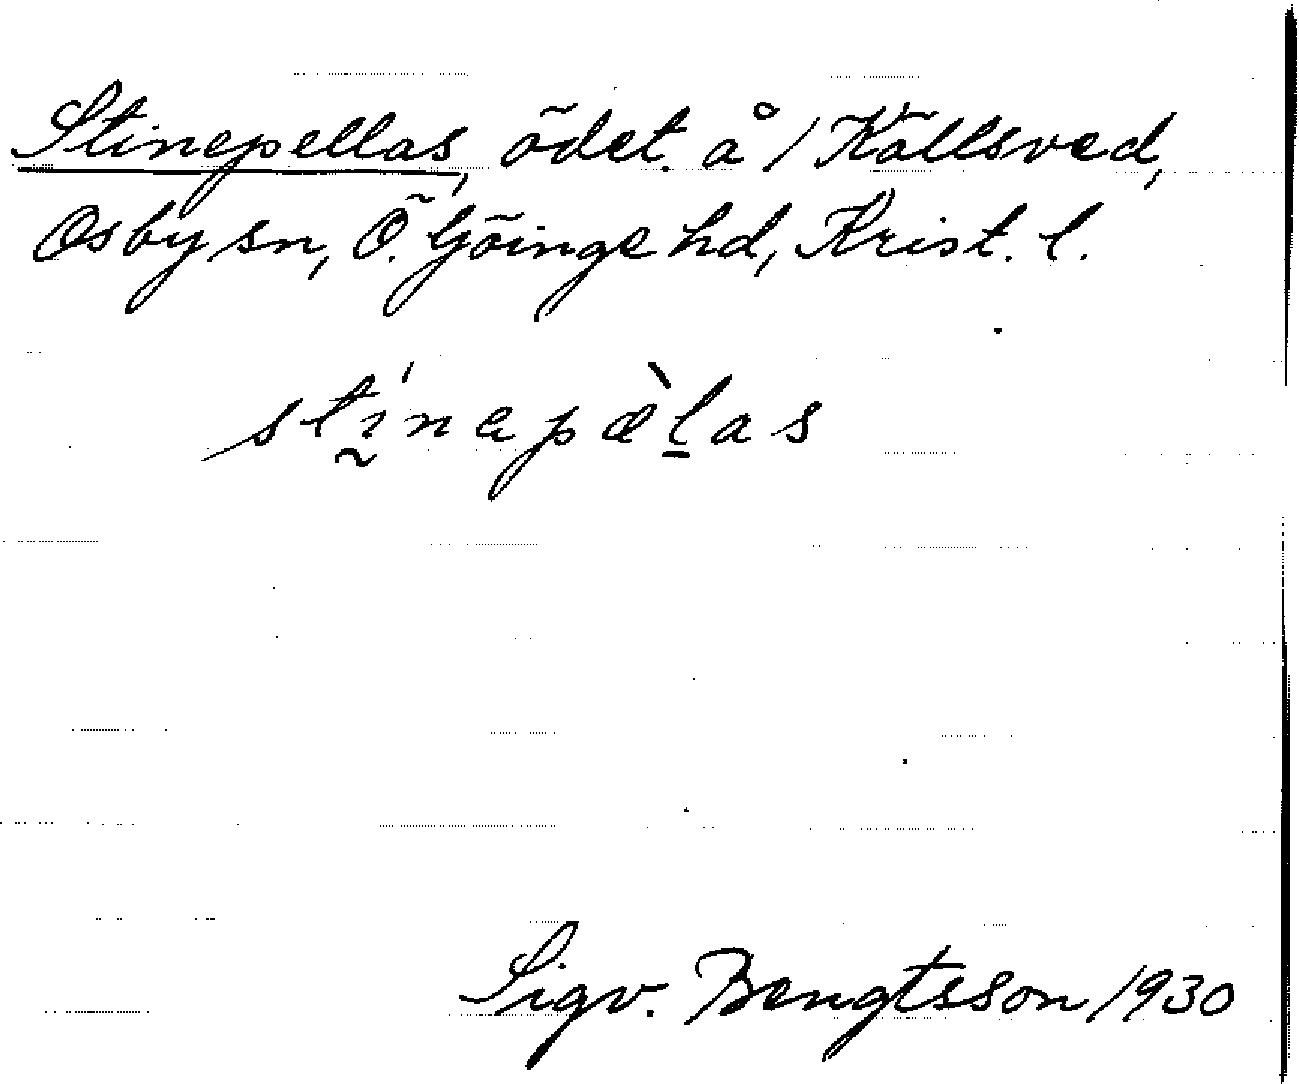 Stinepellas, ödet. å 1 Källsved,
Osby sn, Ö. Göinge hd, Krist. l.
stínepæ̀las
Sigv. Bengtsson 1930